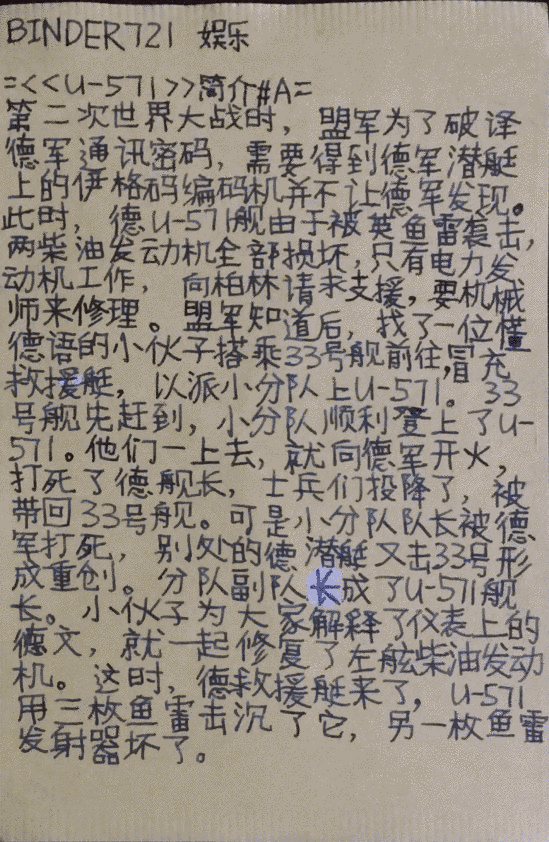 BINDER721 娱乐
=<<U-571>>简介#A=
第二次世界大战时，盟军为了破译
德军通讯密码，需要得到德军潜艇
上的伊格码编码机并不让德军发现。
此时，德U-571舰由于被英鱼雷袭击，
两柴油发动机全部损坏，只有电力发
动机工作，向柏林请求支援，要机械
师来修理。盟军知道后，找了一位懂
德语的小伙子搭乘33号舰前往，冒充
救援艇，以派小分队上U-571。33
号舰先赶到，小分队顺利登上了U-
571。他们一上去，就向德军开火，
打死了德舰长，士兵们投降了，被
带回33号舰。可是小分队队长被德
军打死，别处的德潜艇又击33号形
成重创。分队副队长成了U-571舰
长。小伙子为大家解释了仪表上的
德文，就一起修复了左舷柴油发动
机。这时，德救援艇来了，U-571
用三枚鱼雷击沉了它，另一枚鱼雷
发射器坏了。